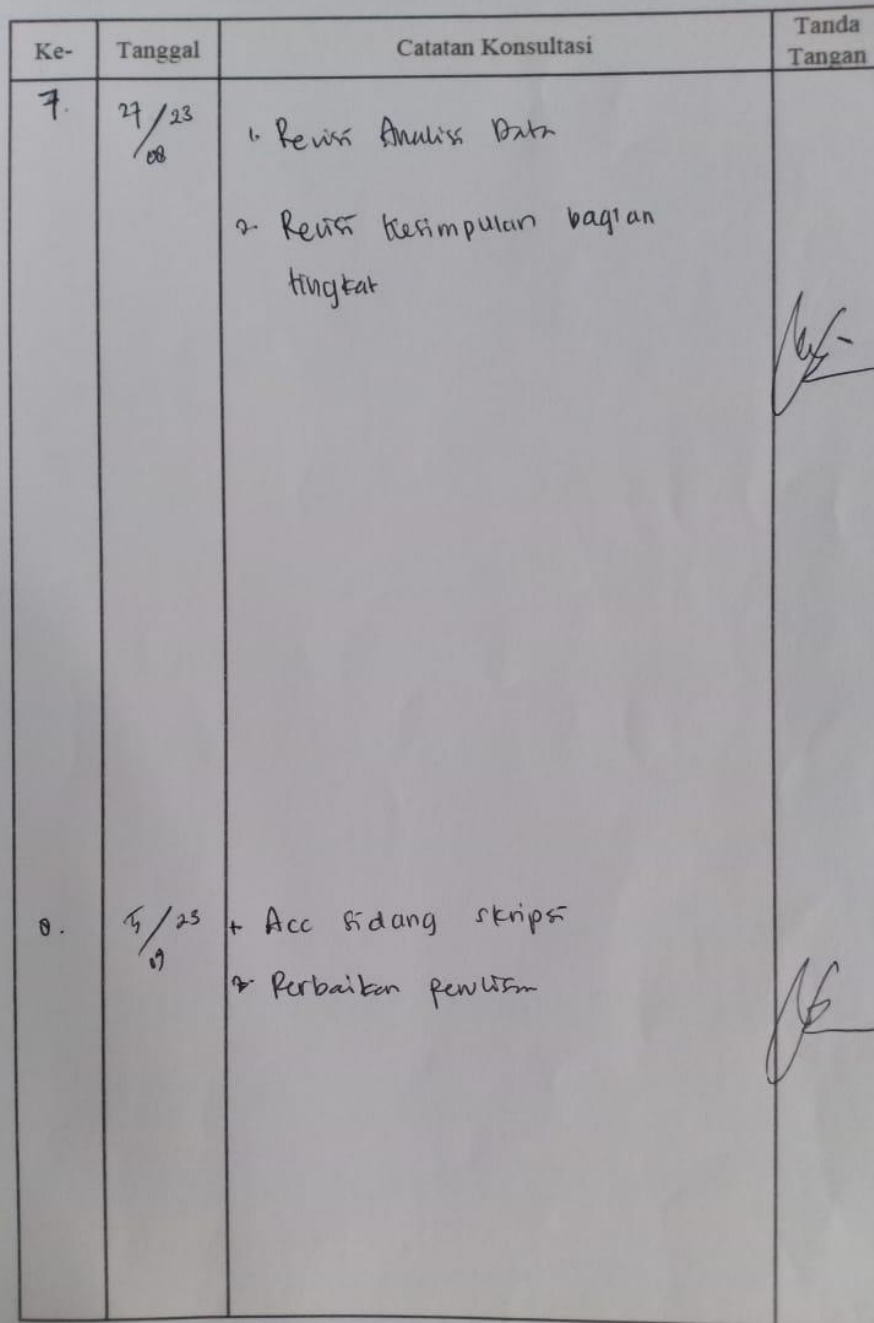 Ke- Tanggal Catatan Konsultasi Tanda
Tangan
7. 27/23 1. Revisi Analisis Data
08
2. Revisi Kesimpulan bagian
tingkat
8. 5/23 + Acc Sidang skripsi
09
2. Perbaikan penulisan